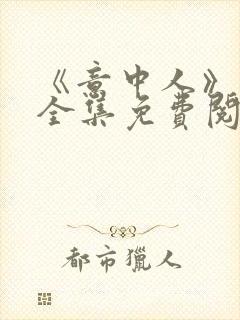 《意中人》
全集免费阅
都市獵人